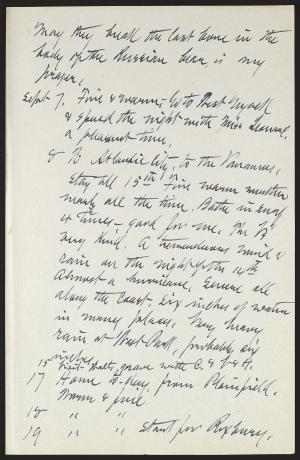 May they break the last bone in the
body of the Russian bear, is my
prayer.
Sept 7. Fine & warm; Go to West
& spend the night with Miss
a pleasant time.
8 To Atlantic City, to the
Stay till 15th Fine warm weather
nearly all the time. Bathe in
4 times - good for me. The
very kind. A tremendous wind &
rain on the night of the
almost a hurricane, severe all
along the Coast, six inches of water
in many places. Very heavy
rain at West Park, probably six
inches.
15 Visit grave with C. &
17 Home to-day, from Plainfield.
Warm & fine
18 " "
19 " " Start for Roxbury.